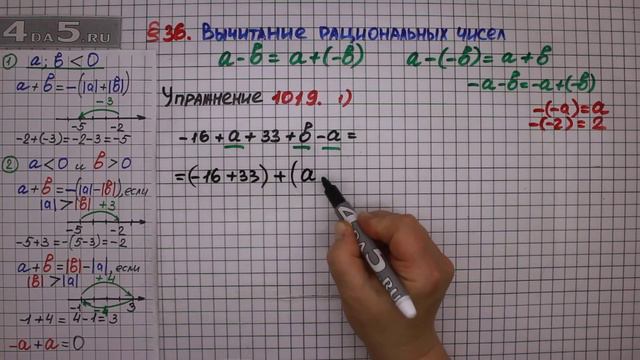 4DA5.RU
§ 36. Вычитание рациональных чисел
a-b = a+(-b)
a-(-b) = a+b
-a-b=-a+(-b)
-(-a)=a
-(-2)=2
Упражнение 1019. 1)
-16+a+33+b-a=
=(-16+33)+(a
1) a; b < 0
a+b=-(|a|+|b|)
-3
-5 -2
-2+(-3)=-2-3=-5
2) a<0 и b>0
a+b=-(|a|-|b|), если
|a|>|b| +3
-5 -2
-5+3=-(5-3)=-2
a+b=|b|-|a|, если
|b|>|a| +4
-1 3
-1+4 = 4-1=3
-a+a=0
4DA5.RU